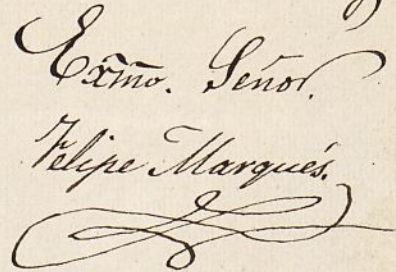 Exmo. Señor.
Felipe Marqués.